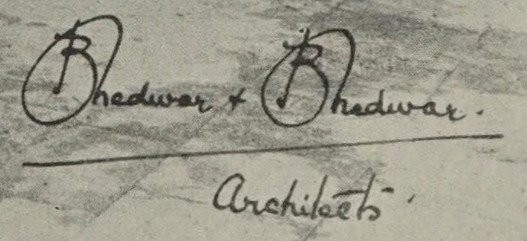 Bhedwar & Bhedwar.
Architects